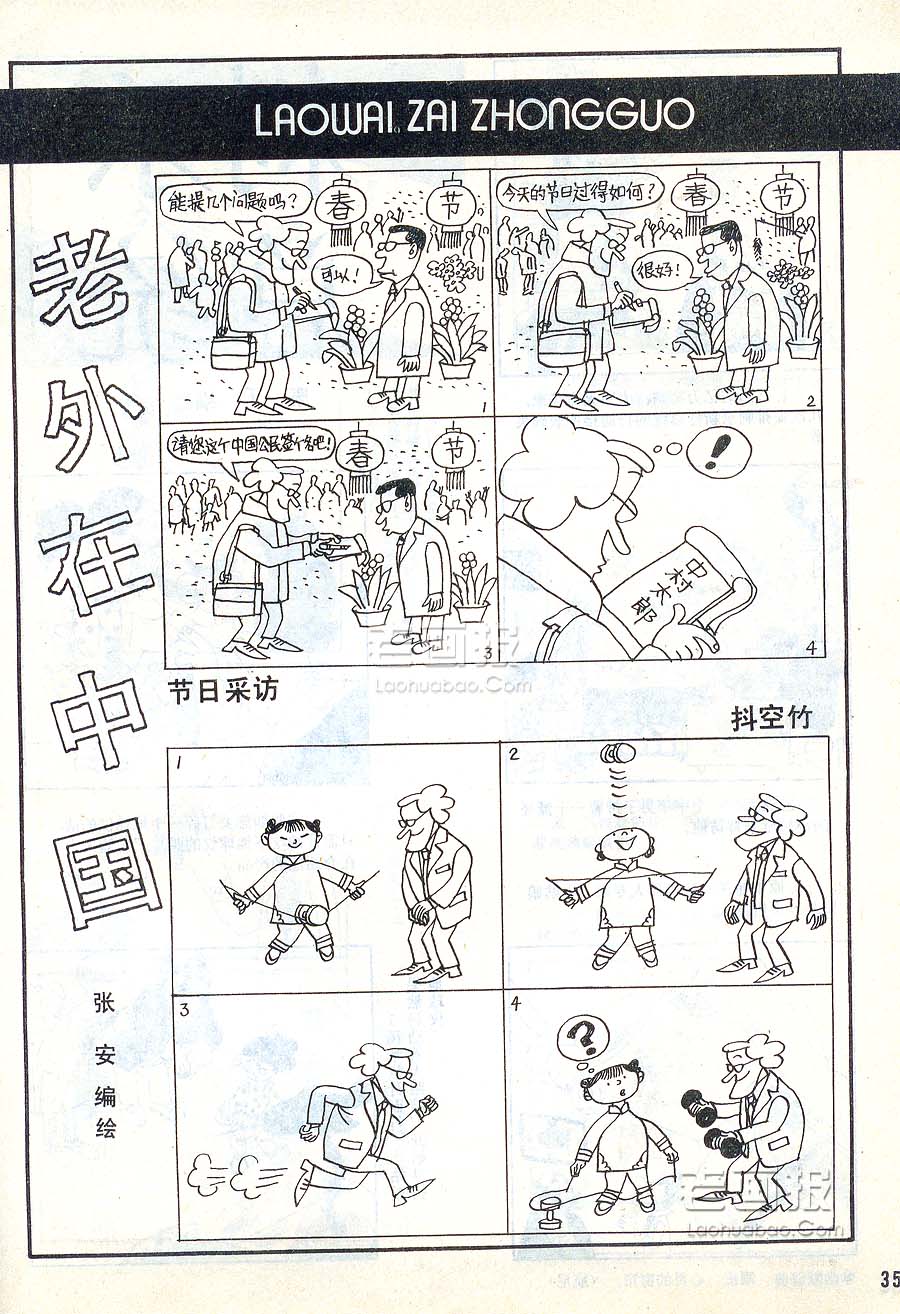 LAOWAI ZAI ZHONGGUO
老外在中国
张安编绘
能提几个问题吗？
春
节
可以！
1
今天的节日过得如何？
春
节
很好！
2
请您这个中国公民签个名吧！
春
节
3
！
中村太郎
4
老画报
Laohuabao.Com
节日采访
抖空竹
1
2
3
4
？
老画报
Laohuabao.Com
35